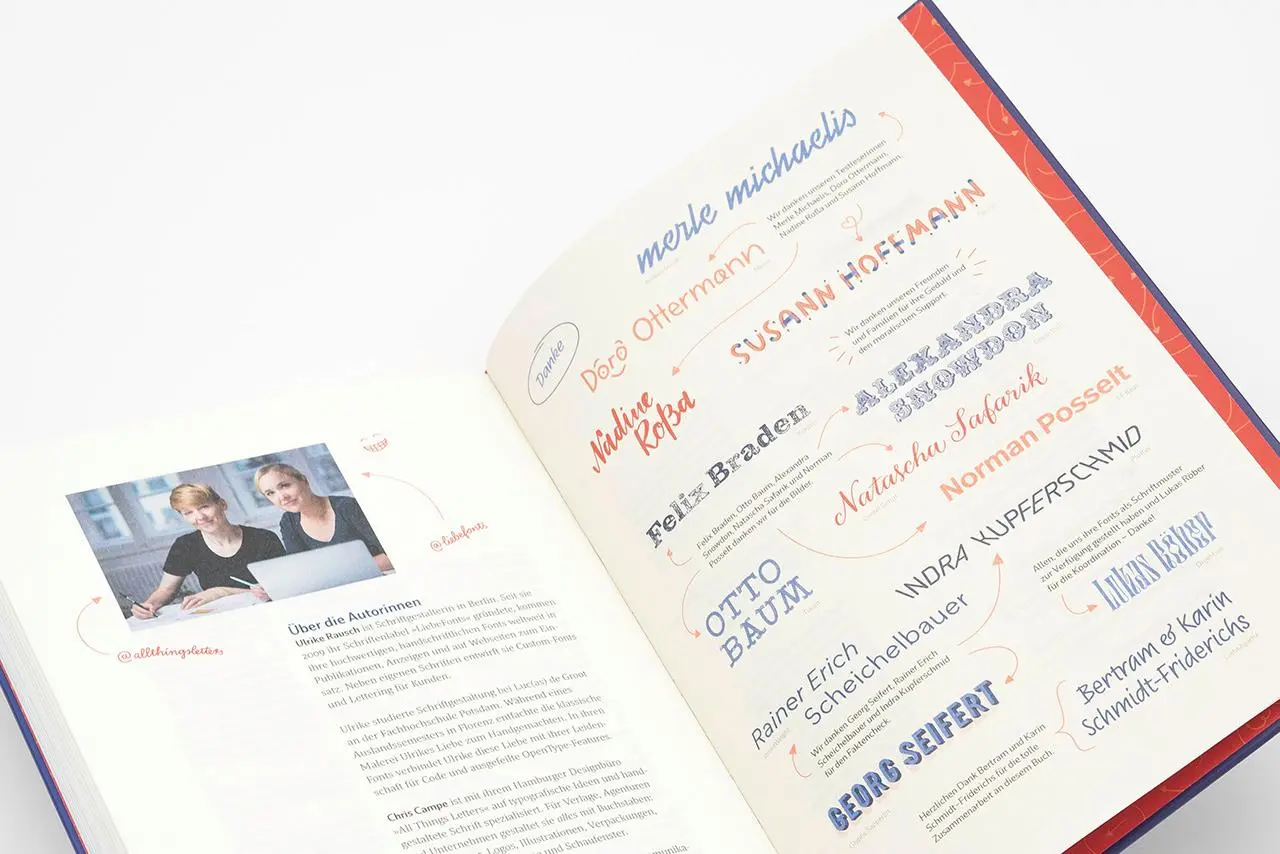 @allthingsletters
@liebefonts
Über die Autorinnen
Ulrike Rausch ist Schriftgestalterin in Berlin. Seit sie
2009 ihr Schriftenlabel »LiebeFonts« gründete, kommen
ihre hochwertigen, handschriftlichen Fonts weltweit in
Publikationen, Anzeigen und auf Webseiten zum Ein-
satz. Neben eigenen Schriften entwirft sie Custom-Fonts
und Lettering für Kunden.
Ulrike studierte Schriftgestaltung bei Luc(as) de Groot
an der Fachhochschule Potsdam. Während eines
Auslandssemesters in Florenz entfachte die klassische
Malerei Ulrikes Liebe zum Handgemachten. In ihren
Fonts verbindet Ulrike diese Liebe mit ihrer Leiden-
schaft für Code und ausgefeilte OpenType-Features.
Chris Campe ist mit ihrem Hamburger Designbüro
»All Things Letters« auf typografische Ideen und hand-
gestaltete Schrift spezialisiert. Für Verlage, Agenturen
und Unternehmen gestaltet sie alles mit Buchstaben:
Logos, Illustrationen, Verpackungen,
und Schaufenster.
Danke
merle michaelis
Wir danken unseren Testleserinnen
Merle Michaelis, Doro Ottermann,
Nadine Roßa und Susann Hoffmann.
Doro Ottermann
SUSANN HOFFMANN
Nadine
Roßa
Wir danken unseren Freunden
und Familien für ihre Geduld und
den moralischen Support.
ALEXANDRA
SNOWDON
Felix Braden
Felix Braden, Otto Baum, Alexandra
Snowdon, Natascha Safarik und Norman
Posselt danken wir für die Bilder.
Natascha Safarik
Norman Posselt
OTTO
BAUM
INDRA KUPFERSCHMID
Allen, die uns ihre Fonts als Schriftmuster
zur Verfügung gestellt haben und Lukas Rüber
für die Koordination – Danke!
Rainer Erich
Scheichelbauer
Wir danken Georg Seifert, Rainer Erich
Scheichelbauer und Indra Kupferschmid
für den Faktencheck.
GEORG SEIFERT
Bertram & Karin
Schmidt-Friderichs
Herzlichen Dank Bertram und Karin
Schmidt-Friderichs für die tolle
Zusammenarbeit an diesem Buch.